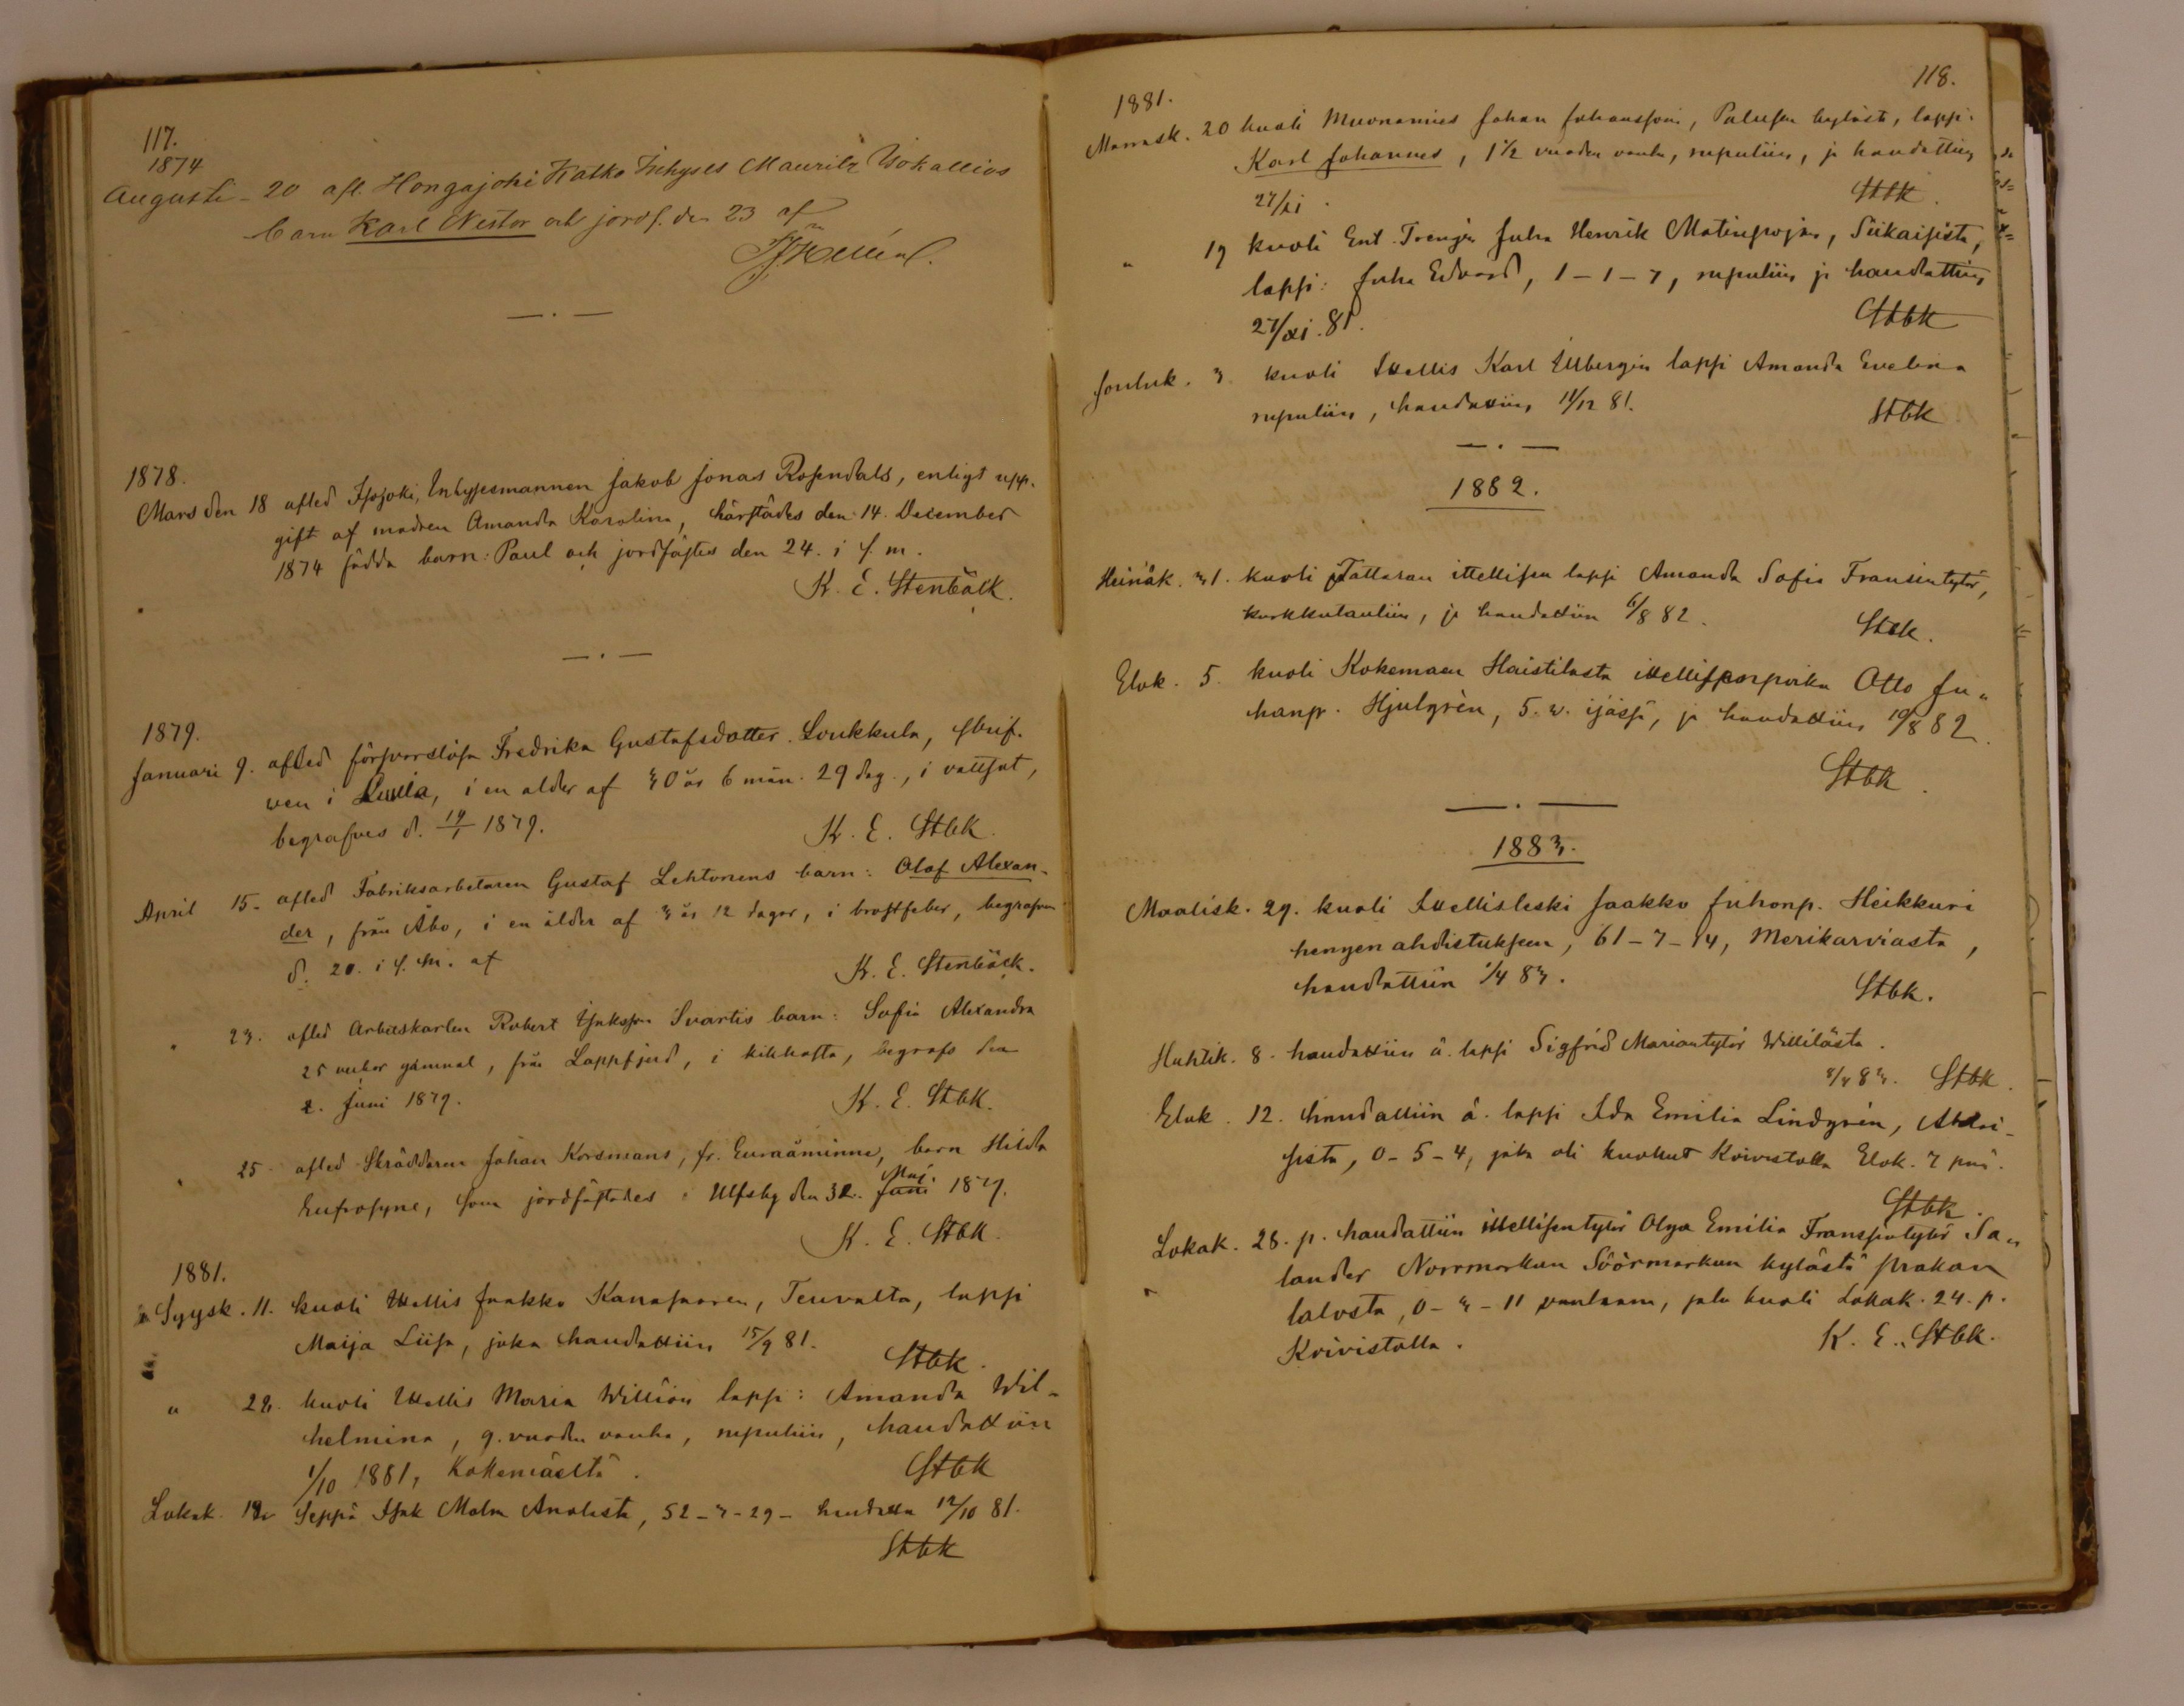 117.
1874
Augusti - 20 afl. Hongajoki Katko Inhyses Mauritz Isokallios
barn Karl Nestor och jordf. den 23 af
1878.
Mars den 18 afled Isojoki, Inhysesmannen Jakob Jonas Rosendals, enligt upp-
gift af modren Amanda Karolina, härstädes den 14. December
1874 födda barn: Paul och jordfästes den 24. i s. m.
K. E. Stenbäck.
1879.
Januari 9. afled försvarslösa Fredrika Gustafsdotter Loukkula, skrif-
ven i Luvia, i en ålder af 30 år 6 mån. 29 dag., i vattsot,
begrafves d. 19/1 1879.
K. E. Stbk.
April 15. afled Fabriksarbetaren Gustaf Lehtonens barn: Olof Alexan-
der, från Åbo, i en ålder af 3 år 12 dagar, i bröstfeber, begrafven
d. 20. i s. m. af
K. E. Stenbäck.
" 23. afled Arbetskarlen Robert Isaksson Svartis barn: Sofia Alexandra
25 veckor gammal, från Lappfjerd, i kikhosta, begrofs den
2. Juni 1879.
K. E. Stbk.
" 25 afled Skräddaren Johan Korsmans, fr. Euraåminne, barn Hilda
Eufrosyne, som jordfästades i Ulfsby den 32. Juni Maj. 1879.
K. E. Stbk.
1881.
Syysk. 11. kuoli Itellis Jaakko Kanasaaren, Teuvalta, lapsi
Maija Liisa, joka haudattiin 15/9 81.
Stbk.
" 28. kuoli Itellis Maria Willion lapsi: Amanda Wil-
helmina, 9. vuoden vanha, rupuliin, haudattiin
1/10 1881, Kokemäeltä.
Stbk
Lokak. Seppä Isak Malm Anolasta, 52-7-29- haudattu 12/10 81.
Stbk
118.
1881.
Marrask. 20 kuoli Muonamies Johan Johansson, Palusen kylästä, lapsi:
Karl Johannes, 1 1/2 vuoden vanha, rupuliin, ja haudattiin
27/xi.
Stbk.
" 19 kuoli Ent. Trengin Juha Henrik Matinpojan, Siikaisista,
lapsi: Juha Edvard, 1-1-7, rupuliin ja haudattiin
27/xi. 81.
Stbk
Jouluk. 3. kuoli Itellis Karl Ullbergin lapsi Amanda Evelina
rupuliin, haudattiin 11/12 81.
Stbk
1882.
Heinäk. 31. kuoli Tattaran ittellisen lapsi Amanda Sofia Fransintytär,
kurkkutautiin, ja haudattiin 6/8 82.
Stbk.
Elok. 5. kuoli Kokemäen Haistilasta ittellisenpoika Otto Ju-
hanp. Hjulgrén, 5. v. ijässä, ja haudattiin 10/8 82.
Stbk.
1883.
Maalisk. 29. kuoli Itellisleski Jaakko Juhonp. Heikkuri
hengen ahdistukseen, 61-7-14, Merikarviasta,
haudattiin 1/4 83.
Stbk.
Huhtik. 8. haudattiin ä. lapsi Sigfrid Mariantytär Willilästä.
8/4 83. Stbk.
Elok. 12. haudattiin ä. lapsi Ida Emilia Lindgrén,
sista, 0-5-4, joka oli kuollut Koivistolla Elok. 7 pnä.
Stbk.
Lokak. 28. p. haudattiin ittellisentytär Olga Emilia Franssintytär Sa-
lander Norrmarkun Söörmarkun kylästä
talosta, 0-3-11 vanhana, joka kuoli Lokak. 24. p.
Koivistolla.
K. E. Stbk.